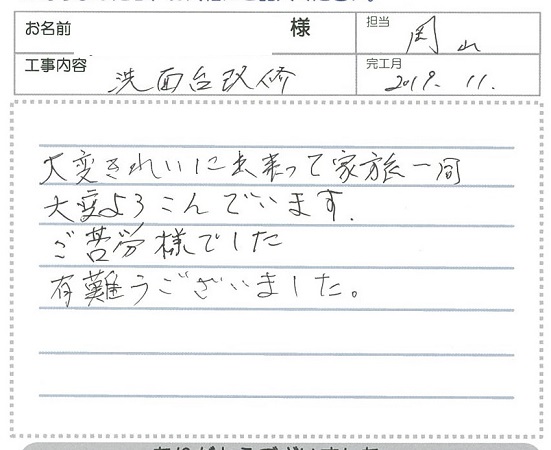 お名前 様 担当 岡山
工事内容 洗面台改修 完工月 2019. 11.
大変きれいに出来って家族一同
大変よろこんでいます.
ご苦労様でした
有難うございました。